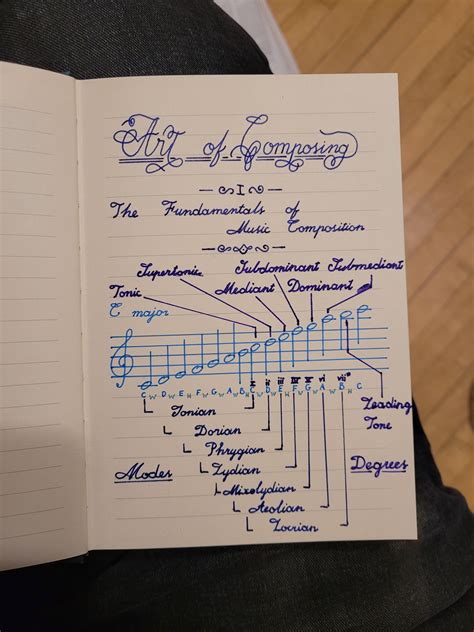 Art of Composing
I
The Fundamentals of
Music Composition
Supertonic Subdominant Submediant
Tonic Mediant Dominant
C major
I ii iii IV V vi vii°
C W D W E H F W G W A W B H C W D W E H F W G W A W B H C
Ionian
Leading
Tone
Dorian
Phrygian
Lydian
Modes Degrees
Mixolydian
Aeolian
Locrian